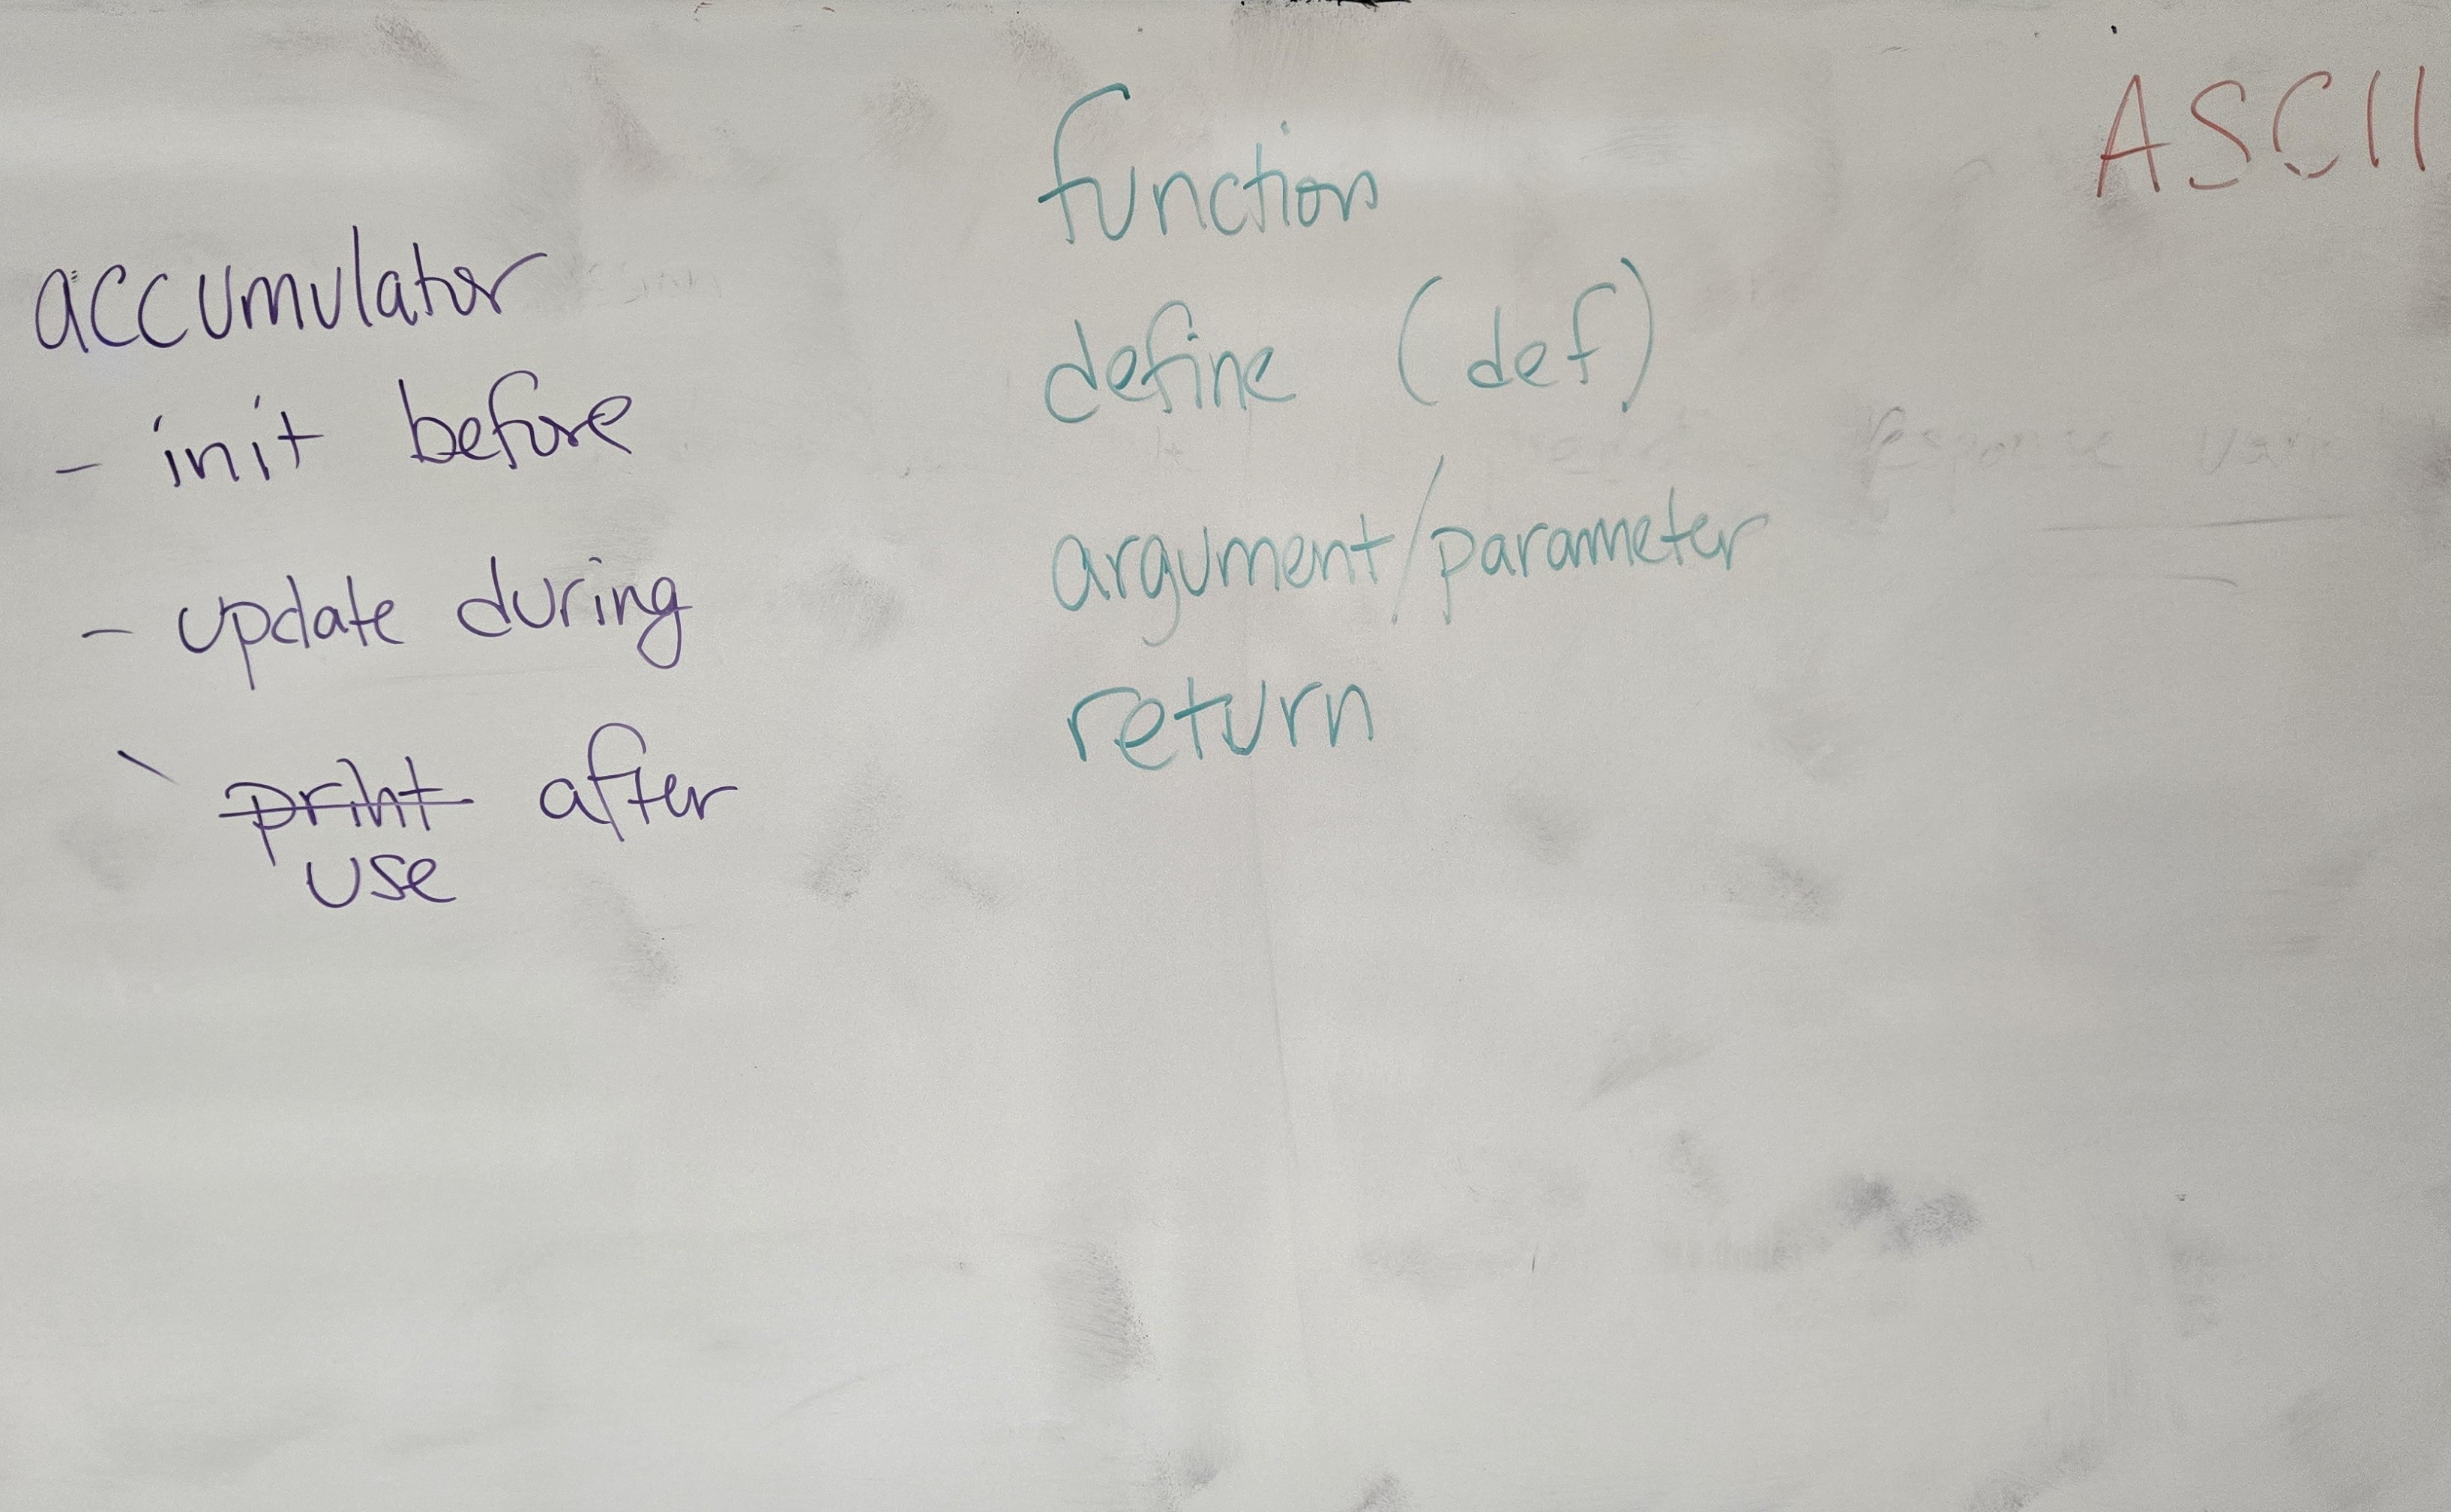 accumulator
- init before
- update during
- print after
use
function
define (def)
argument/parameter
return
ASCII